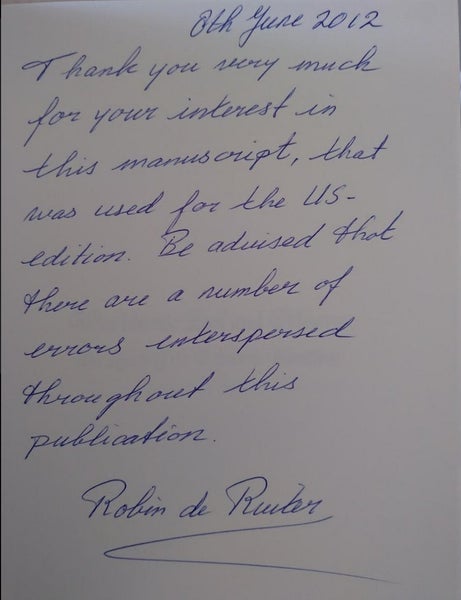 8th June 2012
Thank you very much
for your interest in
this manuscript, that
was used for the US-
edition. Be advised that
there are a number of
errors interspersed
throughout this
publication.
Robin de Ruiter